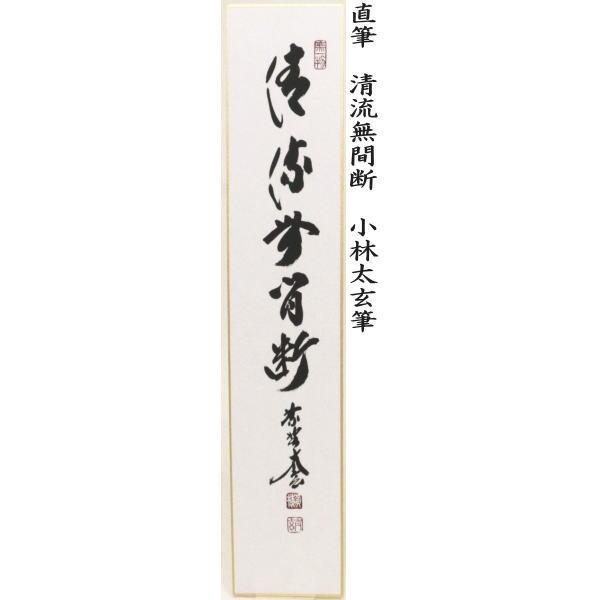 直筆　清流無間断　小林太玄筆
清流無間断